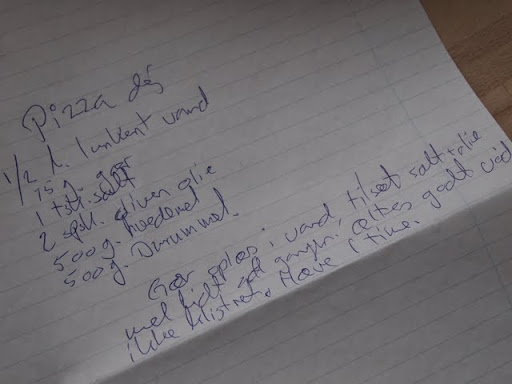 Pizza dej
1/2 l. lunkent vand
15 g. gær
1 tsk. salt
2 spsk. oliven olie
500 g. hvedemel
500 g. Durummel.
Gær opløs i vand, tilsæt salt + olie
mel lidt af gangen. æltes godt våd
ikke klistret. Hæve 1 time.